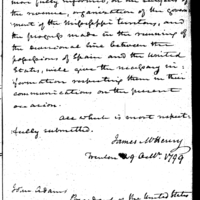 more fully informed, on the subjects of
the revenue, organization of the govern-
ment of the Mississippi territory, and
the progress made in the running of
the line between the
possessions of Spain and the United
States, will give the necessary in-
formation respecting them in their
communications on the present
occasion.
All which is most respect-
fully submitted.
James McHenry
Trenton 29 1799
John Adams
President of the United States